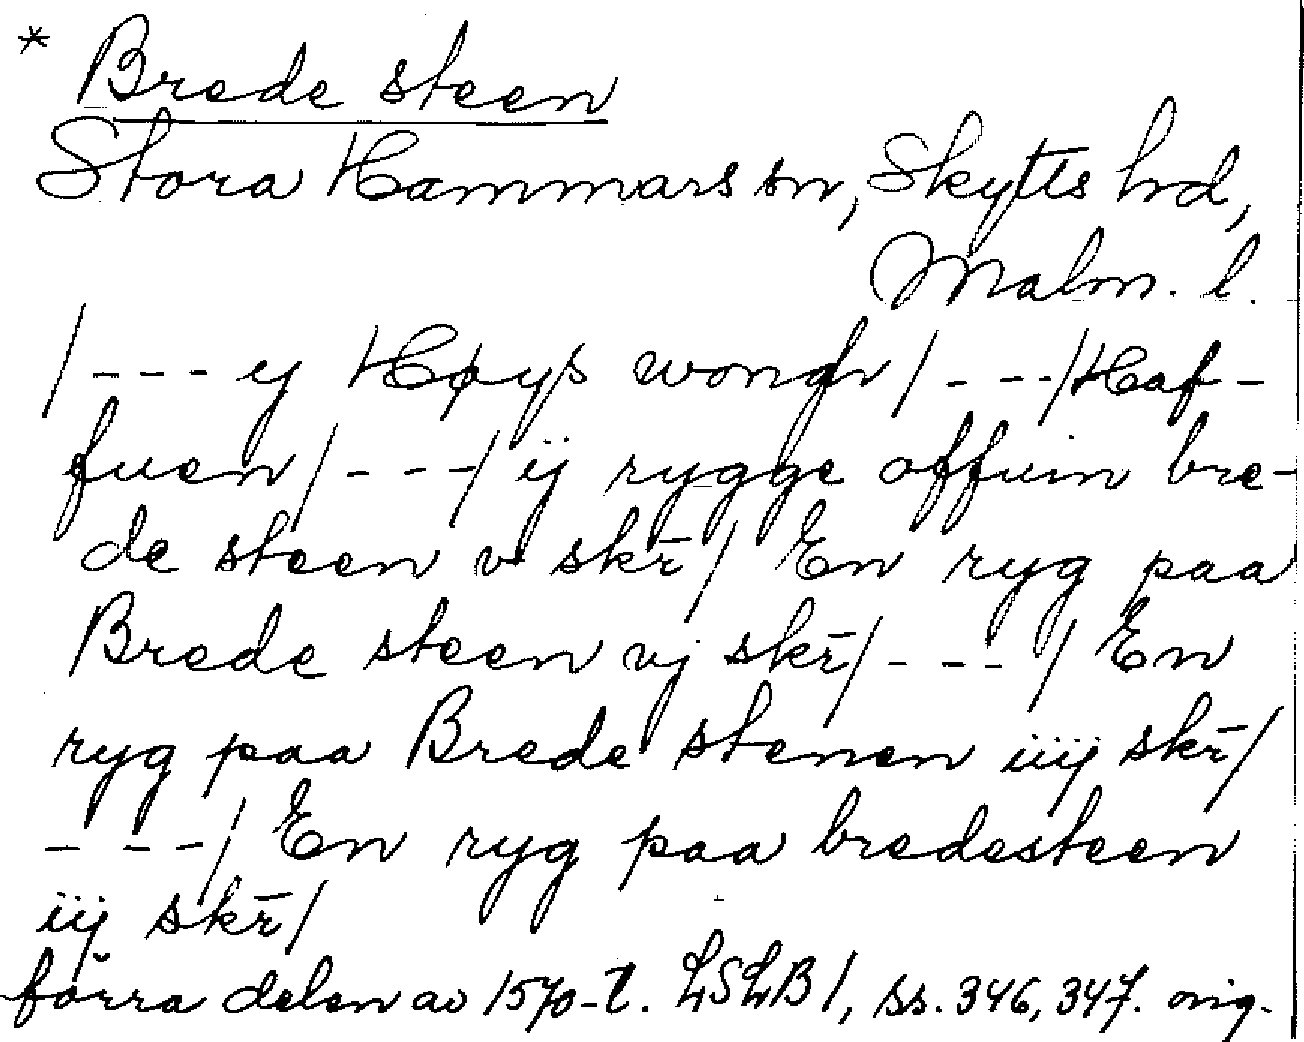 * Brede steen
Stora Hammars sn, Skytts hd,
Malm. l.
/---y Høys wongh/---/Haf-
fuen/---/ ij rygge offuin bre-
de steen v skr̄/ En ryg paa
Brede steen vj skr̄/---/ En
ryg paa Brede stenen iiij skr̄/
---/ En ryg paa bredesteen
iij skr̄/
förra delen av 1570-t. LSLB 1, ss. 346, 347. orig.